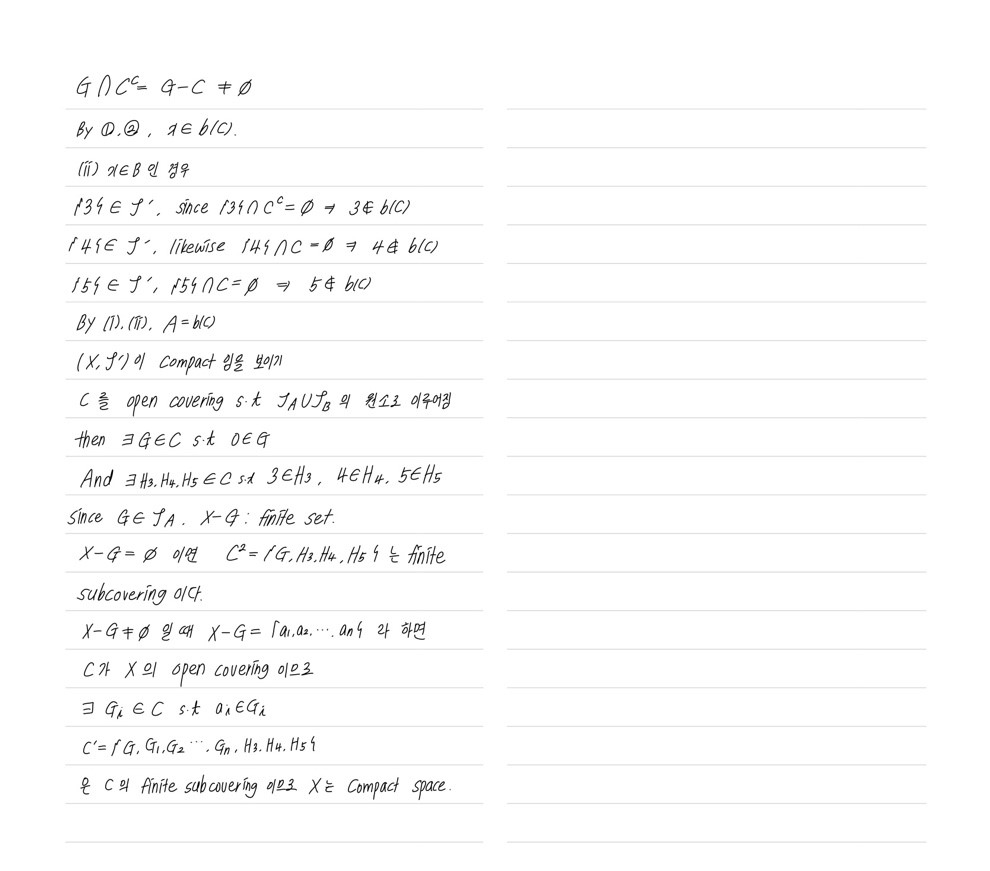 G∩Cᶜ= G-C ≠ ∅
By ①.②, x∈b(C).
(ii) x∈B 인 경우
{3} ∈ J′, since {3}∩Cᶜ=∅ ⇒ 3∉b(C)
{4}∈ J′, likewise {4}∩C =∅ ⇒ 4∉b(C)
{5} ∈ J′, {5}∩C=∅ ⇒ 5∉b(C)
By (i).(ii). A=b(C)
(X, J′)이 Compact 임을 보이기
C 를 open covering s.t J_A∪J_B 의 원소로 이루어짐
then ∃G∈C s.t 0∈G
And ∃H₃.H₄.H₅∈C s.t 3∈H₃, 4∈H₄. 5∈H₅
Since G∈J_A. X-G : finite set.
X-G=∅ 이면 C²={G.H₃.H₄,H₅} 는 finite
subcovering 이다.
X-G≠∅ 일 때 X-G={a₁.a₂.⋯.aₙ} 라 하면
C가 X의 open covering 이므로
∃ Gᵢ ∈ C s.t aᵢ∈Gᵢ
C′={G. G₁,G₂ ⋯. Gₙ, H₃.H₄.H₅}
은 C의 finite subcovering 이므로 X는 Compact space.